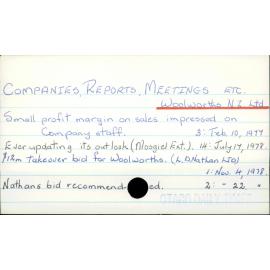 COMPANIES, REPORTS, MEETINGS ETC.
Woolworths N.Z. Ltd.
Small profit margin on sales impressed on
Company staff. 3: Feb. 10, 1977
Ever updating its outlook (Mosgiel Ext.). 14: July 17, 1978.
$12m takeover bid for Woolworths. (L.D. Nathan LTD)
1: Nov. 4, 1978.
Nathans bid recommended. 2: " 22 "